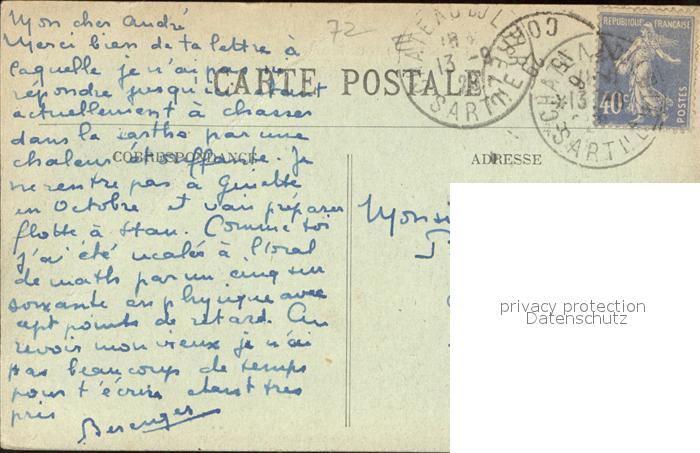 Mon cher André
Merci bien de ta lettre à
laquelle je n'ai pas pu
répondre jusqu'ici étant
actuellement à chasser
dans la Sarthe par une
chaleur étouffante. Je
ne rentre pas à Ginette
en Octobre et vais préparer
flotte à Stan. Comme toi
j'ai été recalé à l'oral
de maths par un cinq sur
soixante en physique avec
sept points de retard. Au
revoir mon vieux je n'ai
pas beaucoup de temps
pour t'écrire étant très
pris
Berenger
72
CARTE POSTALE
CORRESPONDANCE
ADRESSE
REPUBLIQUE FRANÇAISE
40c
POSTES
13 -8
SARTHE
SARTHE
Monsi
privacy protection
Datenschutz